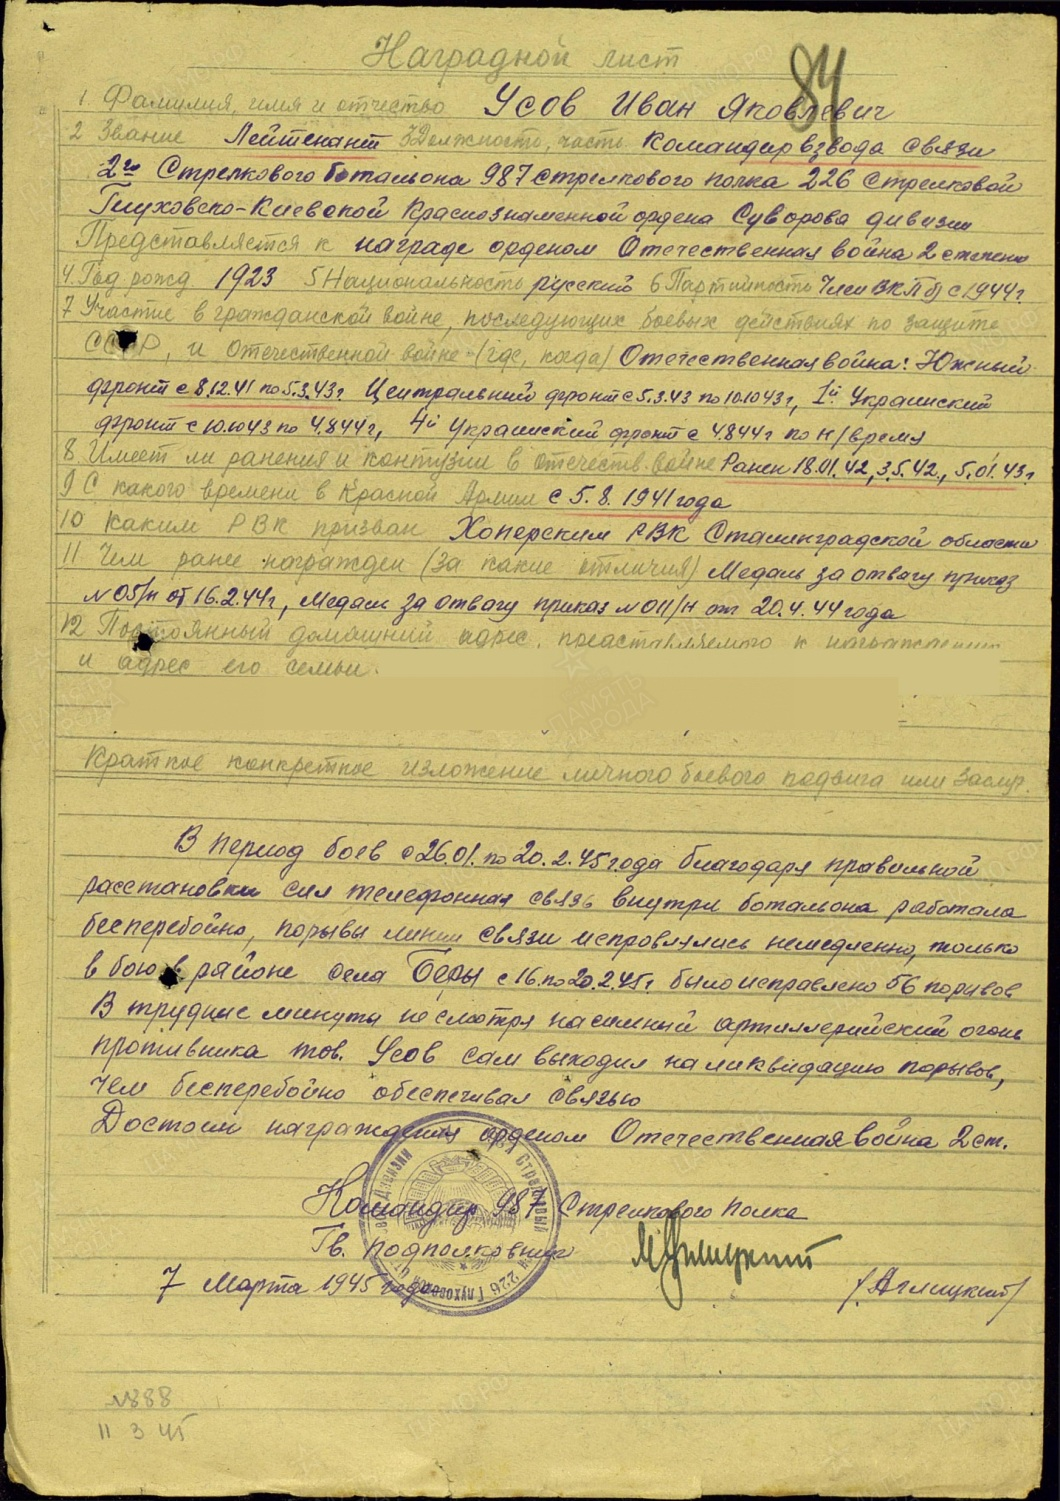 Наградной лист
84
1. Фамилия, имя и отчество Усов Иван Яковлевич
2 Звание Лейтенант 3 Должность, часть Командир взвода связи
2го Стрелкового батальона 987 стрелкового полка 226 Стрелковой
Глуховско-Киевской Краснознаменной ордена Суворова дивизии
Представляется к награде орденом Отечественная война 2 степени
4. Год рожд. 1923 5 Национальность русский 6 Партийность Член ВКП(б) с 1944г.
7 Участие в гражданской войне, последующих боевых действиях по защите
СССР, и отечественной войне (где, когда) Отечественная война: Южный
фронт с 8.12.41 по 5.3.43г. Центральный фронт с 5.3.43 по 10.10 43г, 1й Украинский
фронт с 10.10 43 по 4.8 44г, 4й Украинский фронт с 4.8 44г по н/время
8 Имеет ли ранения и контузии в отечеств. войне Ранен 18.01.42, 3.5.42., 5.01.43г
9 С какого времени в Красной Армии с 5.8.1941 года
10 Каким РВК призван Хоперским РВК Сталинградской области
11 Чем ранее награжден (за какие отличия) Медаль за отвагу приказ
№ 05/н от 16.2.44г, Медаль за отвагу приказ № 011/н от 20.4.44 года
12 Постоянный домашний адрес, представляемого к награждению
и адрес его семьи.
Краткое конкретное изложение личного боевого подвига или заслуг.
В период боев с 26.01. по 20.2.45 года благодаря правильной
расстановки сил телефонная связь внутри ботальона работала
бесперебойно, порывы линии связи исправлялись немедленно, только
в бою в районе села Беры с 16. по 20.2.45г. было исправлено 56 порывов
В трудные минуты несмотря на сильный артиллерийский огонь
противника тов. Усов сам выходил на ликвидацию порывов,
чем бесперебойно обеспечивал связью
Достоин награждения орденом Отечественная война 2 ст.
Командир 987 Стрелкового полка
Гв. подполковник
/Аглицкий/
7 Марта 1945 года
№888
11 3 45